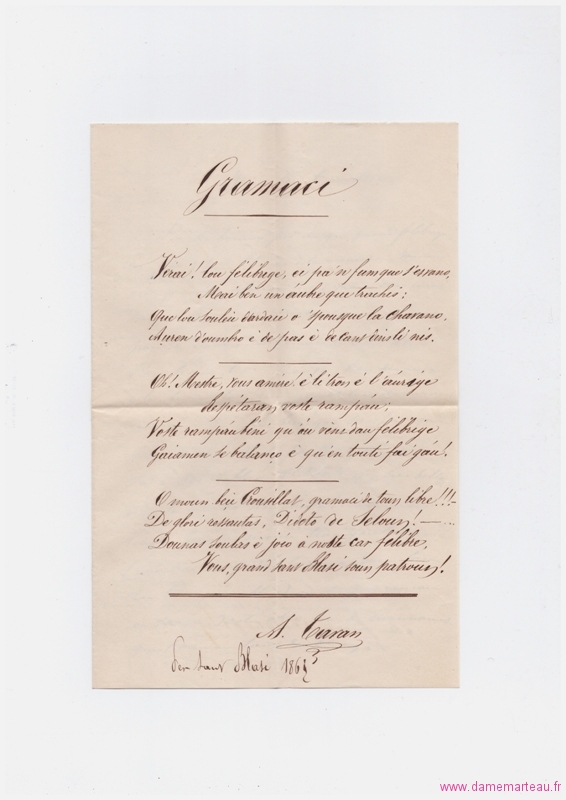 Gramaci
Verai! lou félibrige, ei pa'n fum que s'esvano,
Mai ben un áubre que trachis;
Que lou soulèu dardaie o que la chavano,
Auren d'oumbro è de pas è de cant dins li nis.
Oh! Mestre, vous amire! è li tron è l'áurige
Respetaran voste rampáu;
Voste rampáu béni qu'áu vèns dóu félibrige
Gaiamen se balanço è qu'en touti fai gáu!
O moun bèu Crousillat, gramaci de toun libre!!!
De glòri
De Seloun!
Dounas soulas è joio à noste car félibre,
Vous, grand sant Blasi soun patroun!
A. Tavan
Per sant Blasi 186
www.damemarteau.fr